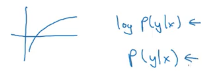 log P(y|x) ←
P(y|x) ←